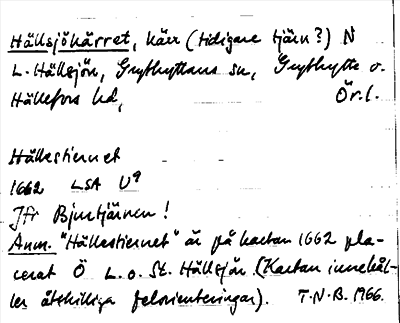 Hällsjökärret, kärr (tidigare tjärn?) N
L. Hällsjön, Grythyttans sn, Grythytte o.
Hällefors hd, Ör.l.
Hällestiernet
1662 LSA U9
Jfr Bjurtjärnen!
Anm. "Hällestiernet" är på kartan 1662 pla-
cerat Ö L. o. St. Hällsjön. (Kartan innehål-
ler åtskilliga felorienteringar). T.N.B. 1966.